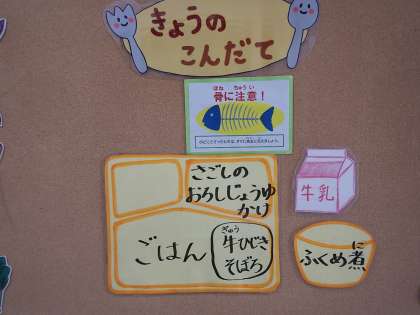 きょうの
こんだて
ほね ちゅうい
骨に注意！
さごしの
おろしじょうゆ
かけ
ごはん
ぎゅう
牛ひじき
そぼろ
牛乳
ふくめ煮
に